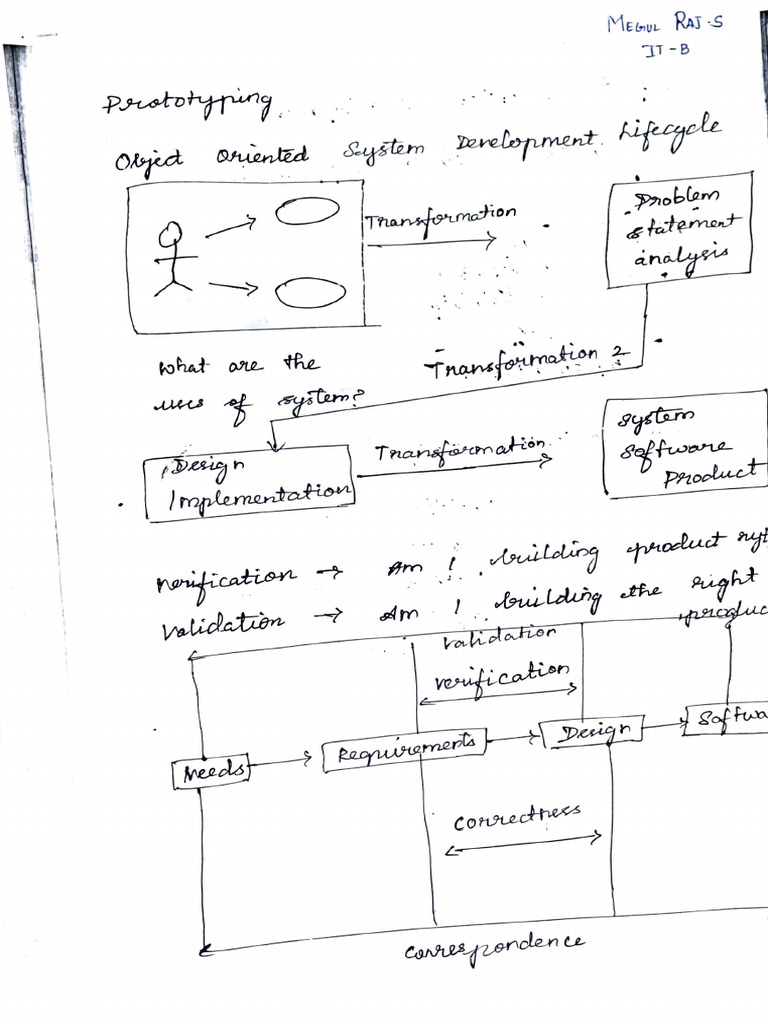 MEGUL RAJ-S
IT-B
Prototyping
Object oriented System Development Lifecycle
Transformation
Problem
statement
analysis
what are the
uses of system?
Transformation 2
Design
Implementation
Transformation
System
Software
Product
Verification → Am I building product
Validation → Am I building the right
produc
Validation
verification
Needs
Requirements
Design
Softwa
correctness
correspondence